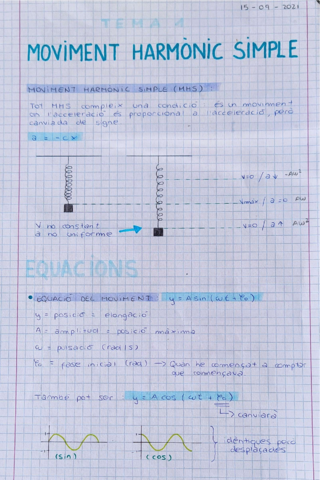 15-09-2021
TEMA 1
MOVIMENT HARMÒNIC SIMPLE
MOVIMENT HARMÒNIC SIMPLE (MHS)
Tot MHS compleix una condició és un moviment
on l'acceleració és proporcional a l'acceleració, però
canviada de signe.
a = -cx
v=0 / a↓ -Aw²
vmàx / a=0 Aw
v=0 / a↑ Aw²
v no constant
a no uniforme
EQUACIONS
• EQUACIÓ DEL MOVIMENT: y = A sin (ωt + φ₀)
y = posició = elongació
A = amplitud = posició màxima
ω = pulsació (rad/s)
φ₀ = fase inicial (rad) → Quan he començat a comptar
que començava
També pot ser y = A cos (ωt + φ₀)
↳ canviarà
idèntiques però
desplaçades
(sin) (cos)